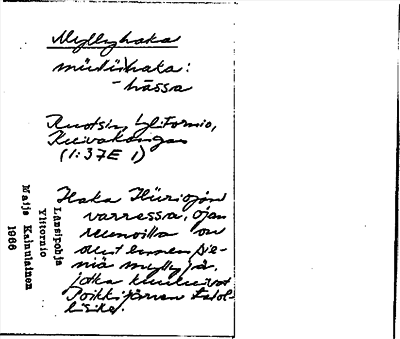 Myllyhaka
müllühaka:
-hāssa
Ruotsin, Yl.Tornio,
Kuivakangas
(1:37E 1)
Haka Hüriojan
varressa, ojan
reunoilla on
ollut ennen pie-
niä myllyjä,
jotka kuuluivat
Poikkijärven talol-
lisike.
Länsipohja
Ylitornio
Maija Kainulainen
1966